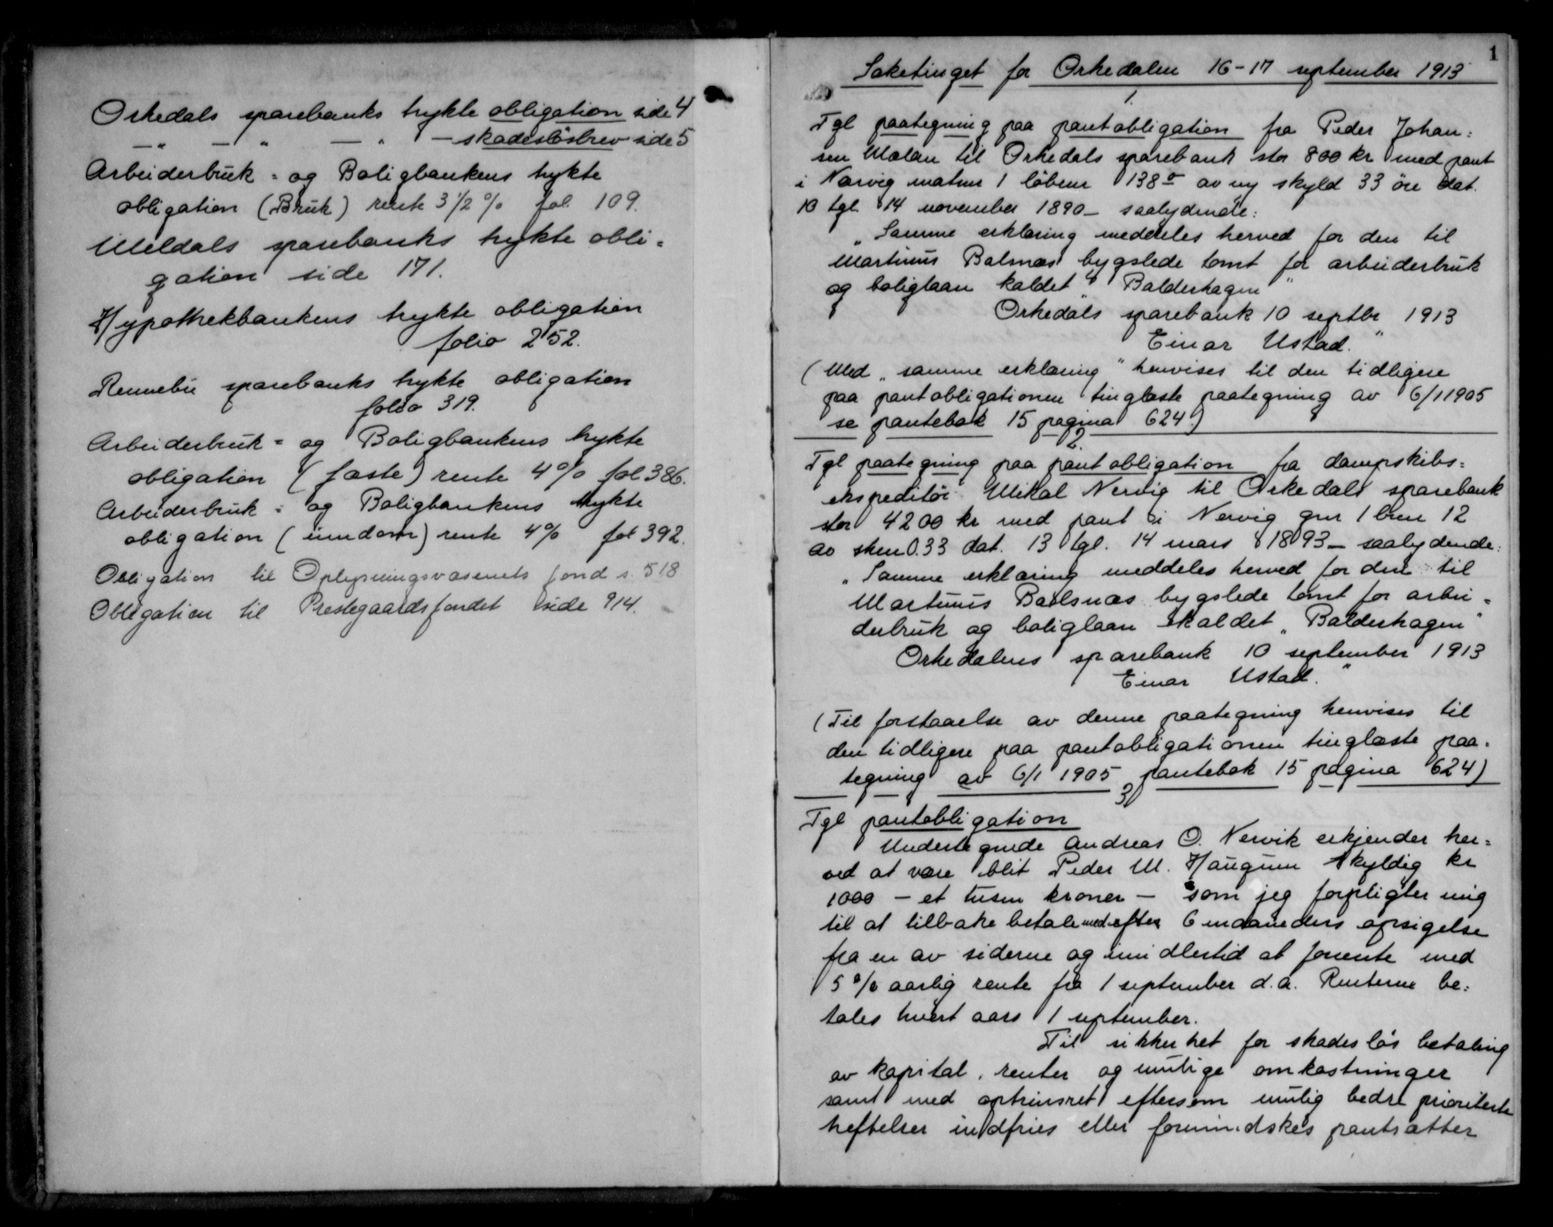 Orkedals sparebanks trykte obligation side 4
—"— — " — " — skadesløsbrev side 5
Arbeiderbruk= og Boligbankens trykte
obligation (Bruk) rente 3 1/2 % fol 109.
Meldals sparebanks trykte obli=
gation side 171.
Hypothekbankens trykte obligation
folio 252.
Rennebu sparebanks trykte obligation
folio 319.
Arbeiderbruk= og Boligbankens trykte
obligation (fæste) rente 4% fol 386.
Arbeiderbruk= og Boligbankens trykte
obligation (eiendom) rente 4% fol 392.
Obligation til Oplysningsvæsenets fond s. 518
Obligation til Prestegaardsfondet side 914.
1
Saketinget for Orkedalen 16-17 september 1913
1
Tgl paategning paa pantobligation fra Peder Johan=
sen Melan til Orkedals sparebank stor 800 kr med pant
i Nervig matnr 1 løbenr 138a av ny skyld 33 øre dat.
10 tgl 14 november 1890 — saalydende:
"Samme erklæring meddeles herved for den til
Martinus Balsnæs bygslede tomt for arbeiderbruk
og boliglaan kaldet "Balderhagen"
Orkedals sparebank 10 septbr 1913
Einar Ustad."
(Med "samme erklæring" henvises til den tidligere
paa pantobligationen tinglæste paategning av 6/1 1905
se pantebok 15 pagina 624)
2
Tgl paategning paa pantobligation fra dampskibs=
ekspeditør Mikal Nervig til Orkedals sparebank
stor 4200 kr med pant i Nervig gnr 1 bnr 12
av skm 0.33 dat. 13 tgl. 14 mars 1893 — saalydende:
"Samme erklæring meddeles herved for den til
Martinus Balsnæs bygslede tomt for arbei=
derbruk og boliglaan kaldet "Balderhagen"
Orkedalens sparebank 10 september 1913
Einar Ustad."
(Til forstaaelse av denne paategning henvises til
den tidligere paa pantobligationen tinglæste paa=
tegning av 6/1 1905 pantebok 15 pagina 624)
3
Tgl pantobligation
Undertegnede Andreas O. Nervik erkjender her=
ved at være blit Peder M. Haugum skyldig kr
1000 — et tusen kroner — som jeg forpligter mig
til at tilbakebetale med efter 6 maaneders opsigelse
fra en av siderne og imidlertid at forrente med
5 % aarlig rente fra 1 september d.a. Renterne be=
tales hvert aars 1 september.
Til sikkerhet for skadesløs betaling
av kapital, renter og mulige omkostninger
samt med optrinsret eftersom mulig bedre prioriterte
heftelser indfries eller formindskes pantsætter